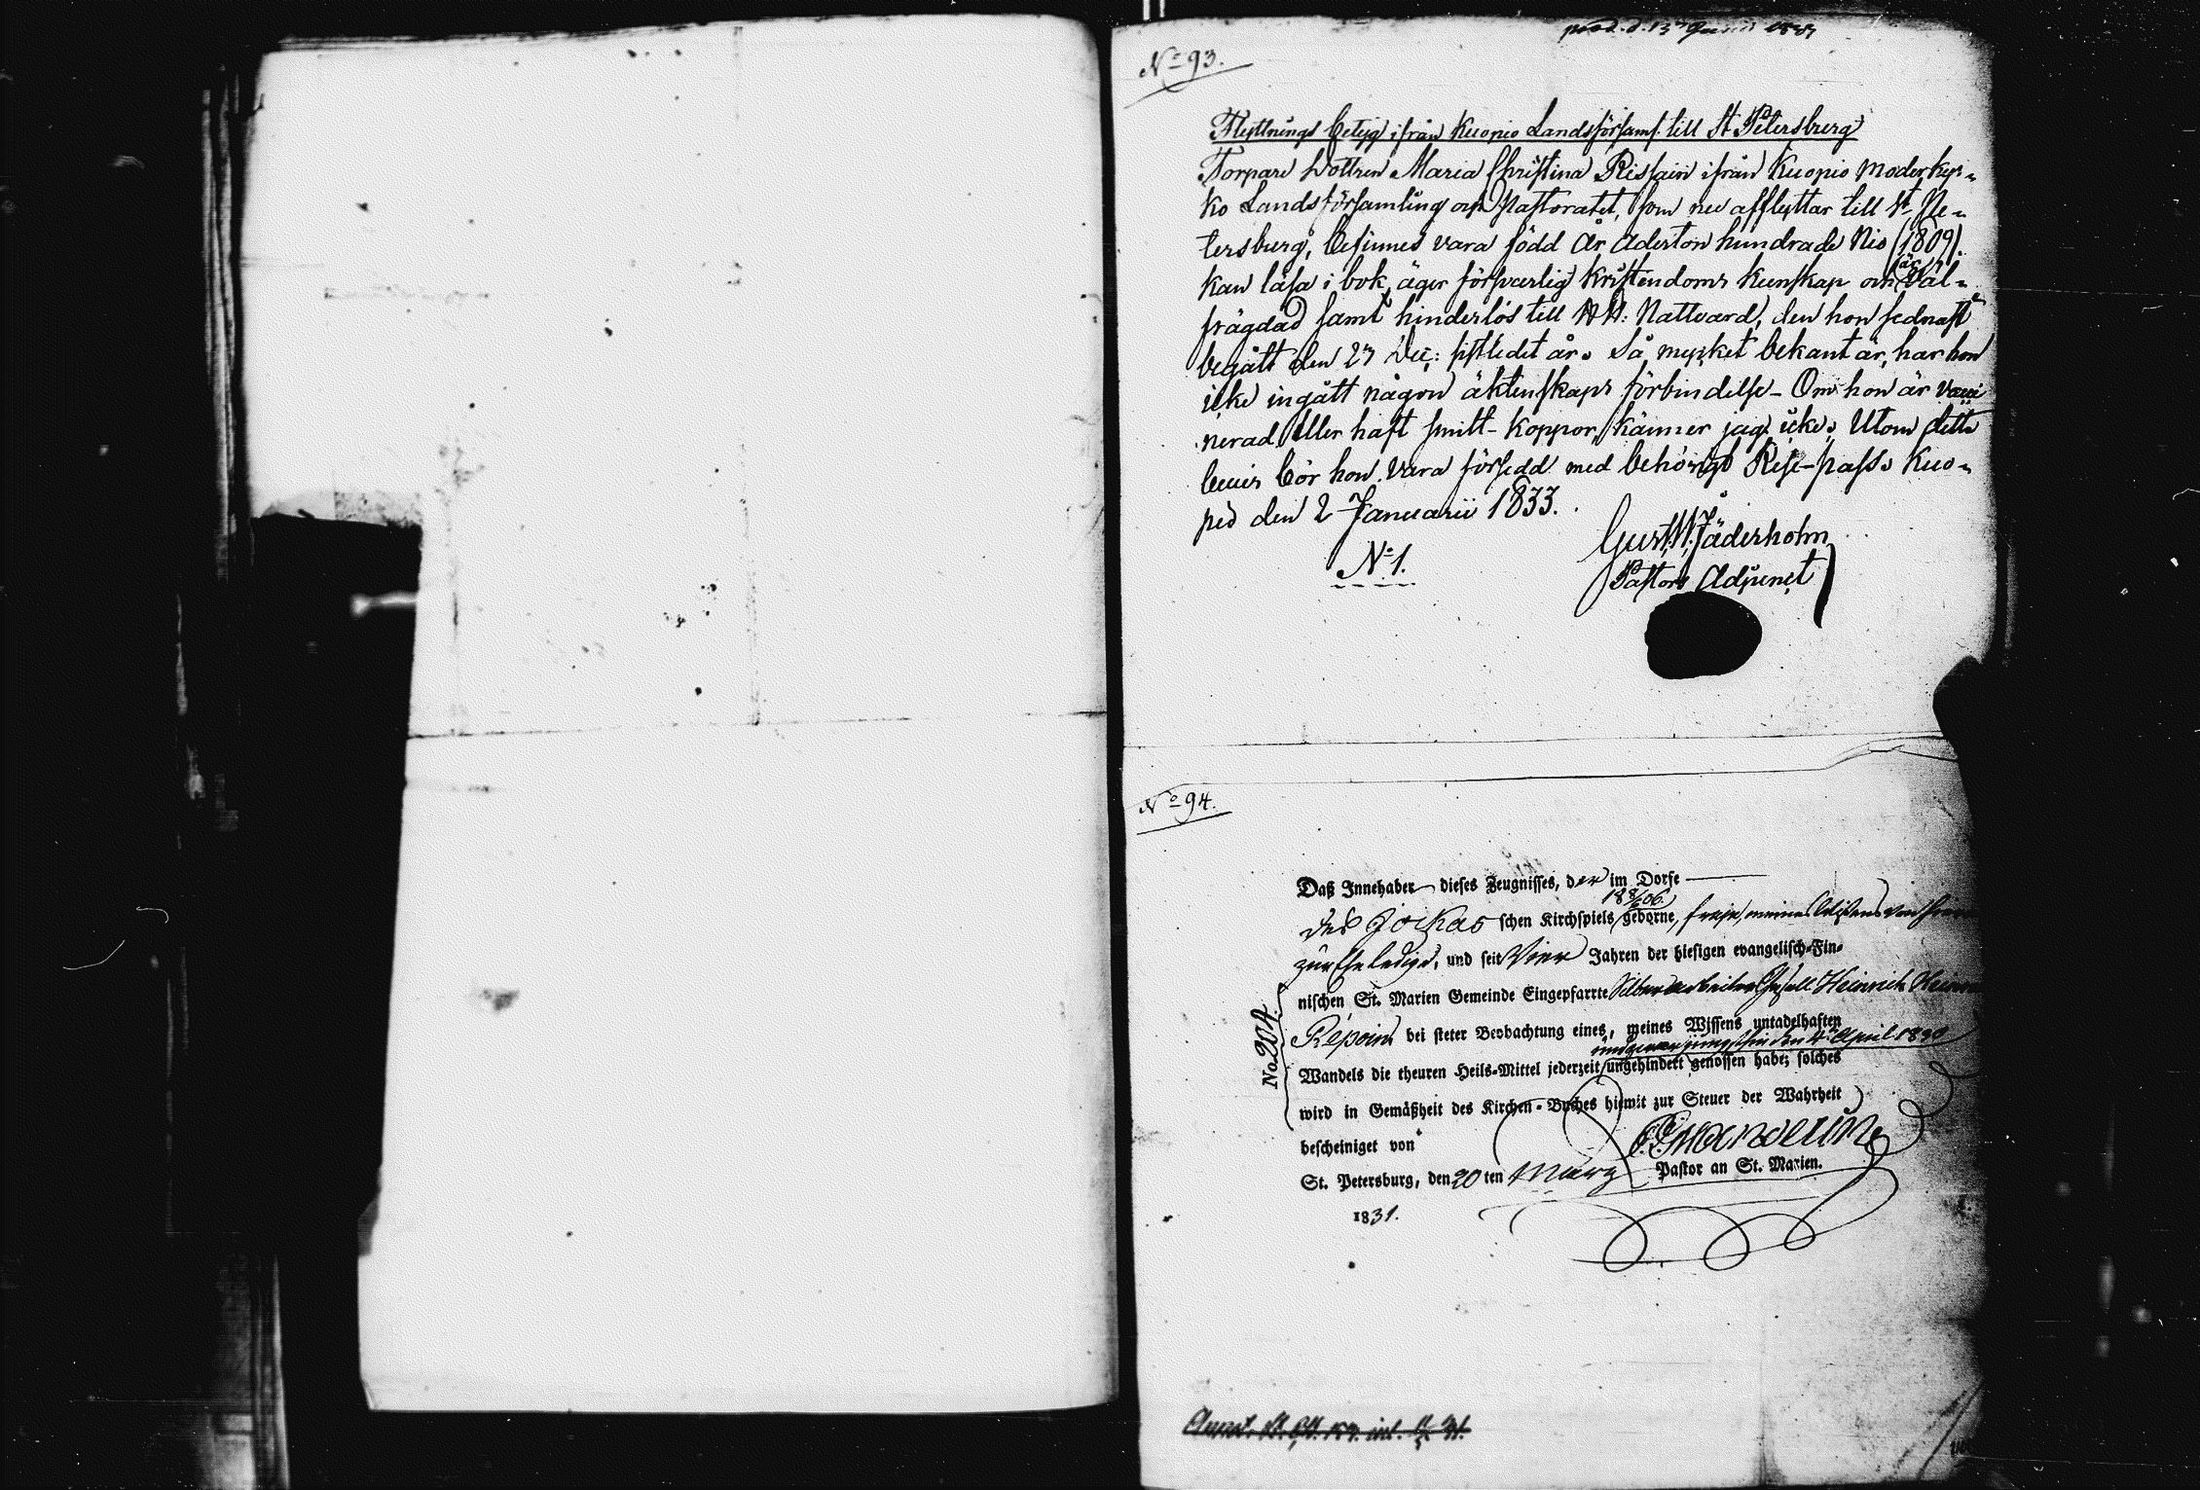 No 93.
Flyttnings Betyg ifrån Kuopio Landsförsaml. till St Petersburg
Torpare Dottren Maria Christina Rissain ifrån Kuopio Moderkyr-
ko Landsförsamling och Pastoratet, som nu afflyttar till St Pe-
tersburg, befinnes vara född År Aderton hundrade Nio (1809).
kan läsa i bok, äger försvarlig kristendoms kunskap och är väl-
frägdad samt hinderlös till H.H. Nattvard, den hon sednast
begått den 27 Dec: sistledet år. Så mycket bekant är, har hon
icke ingått någon äktenskaps förbindelse - Om hon är vacci
nerad eller haft smitt-koppor, känner jag icke. Utom detta
bevis bör hon vara försedd med behörigt Rese-pass. Kuo-
pio den 2 Januarii 1833.
No 1.
Gust. W. Jäderholm
Pastors Adjunct
No 94.
Daß Innehaber dieses Zeugnisses, der im Dorfe
des Jockas schen Kirchspiels geborne, freye, meines Wissens von
zur Ehe ledige, und seit Vier Jahren der hiesigen evangelisch-Fin-
nischen St. Marien Gemeinde Eingepfarrte Silberarbeiter Gesell Heinrich
Repoin bei steter Beobachtung eines, meines Wissens untadelhaften
den 4 April 1830
Wandels die theuren Heils-Mittel jederzeit ungehindert genossen habe; solches
wird in Gemäßheit des Kirchen-Buches hiemit zur Steuer der Wahrheit
bescheiniget von
St. Petersburg, den 20 ten März Pastor an St. Marien.
1831.
No. 204.